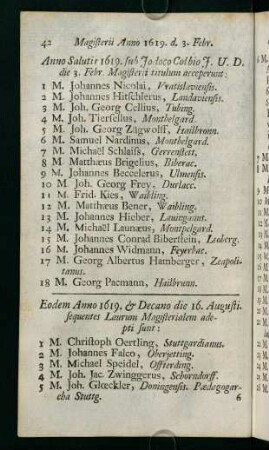 42 Magisterii Anno 1619. d. 3. Febr.
Anno Salutis 1619. sub Jodoco Colbio J. U. D.
die 3. Febr. Magisterii titulum acceperunt:
1 M. Johannes Nicolai, Vratislaviensis.
2 M. Johannes Hitschlerus, Landaviensis.
3 M. Joh. Georg Cellius, Tubing.
4 M. Joh. Tierfelius, Monthelgard.
5 M. Joh. Georg Zügwolff, Hailbronn.
6 M. Samuel Nardinus, Monthelgard.
7 M. Michaël Schlaiss, Gerrenstett.
8 M. Matthæus Brigelius, Biberac.
9 M. Johannes Beccelerus, Ulmensis.
10 M. Joh. Georg Frey, Durlacc.
11 M. Frid. Kies, Waibling.
12 M. Matthæus Bener, Waibling.
13 M. Johannes Hieber, Lauinganus.
14 M. Michaël Launæus, Montpelgard.
15 M. Johannes Conrad Biberstein, Leoberg.
16 M. Johannes Widmann, Feyerbac.
17 M. Georg Albertus Hamberger, Zeapoli-
tanus.
18 M. Georg Pacmann, Hailbrunn.
Eodem Anno 1619. & Decano die 16. Augusti.
sequentes Lauream Magisterialem ade-
pti sunt:
1 M. Christoph Oertling, Stuttgardianus.
2 M. Johannes Falco, Oberjetting.
3 M. Michael Speidel, Offterding.
4 M. Joh. Jac. Zwinggerus, Schorndorff.
5 M. Joh. Glœckler, Doningensis. Pædagogar-
cha Stuttg.
6